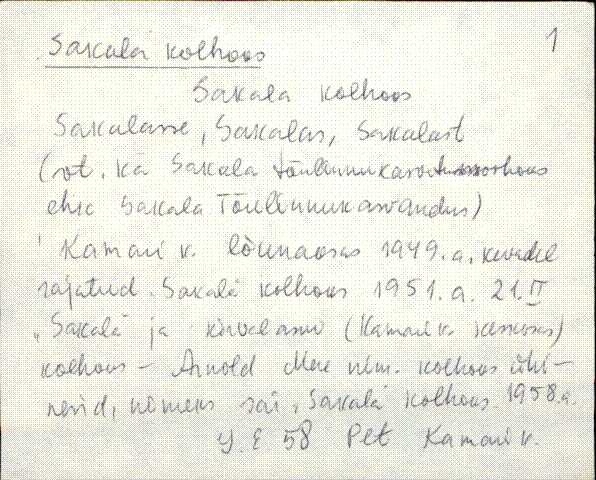 „Sakala" kolhoos 1
Sakala kolhoos
Sakalasse, Sakalas, Sakalast
(vt. ka Sakala tõulinnukasvatussovhoos
ehk Sakala Tõulinnukasvandus)
Kamari k. lõunaosas 1949. a. kevadel
rajatud „Sakala" kolhoos 1951. a. 21. II
„Sakala" ja naabri (Kamari k. keskosas)
kolhoos – Arnold Mere nim. kolhoos ühi-
nesid, nimeks sai „Sakala" kolhoos. 1958. a.
E 58 Plt Kamari k.